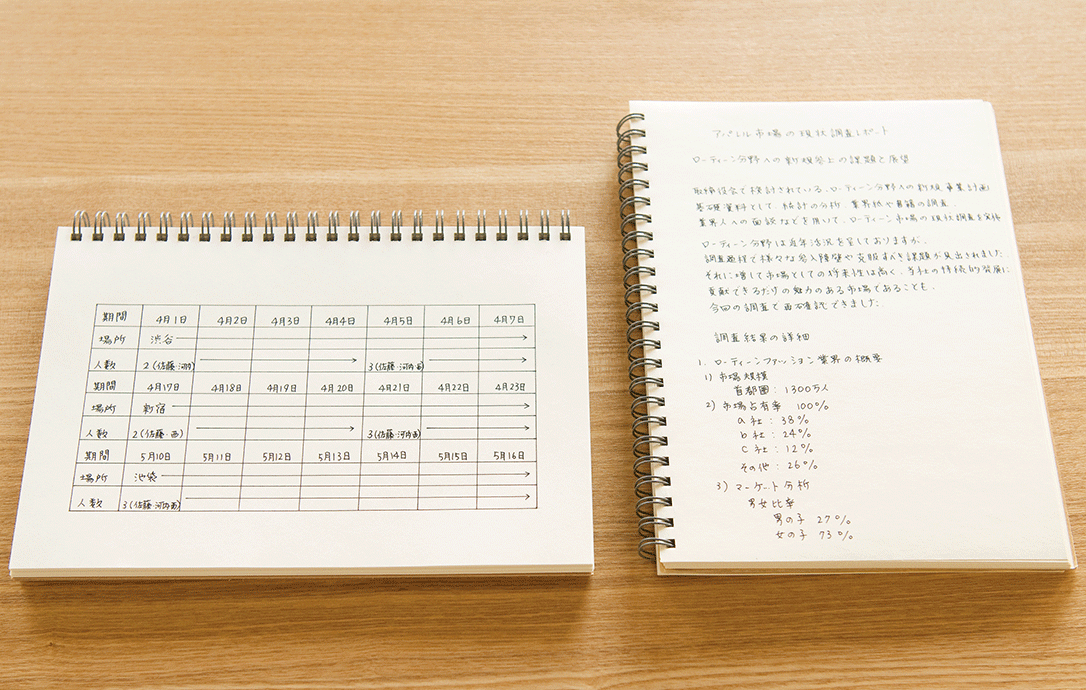 期間 4月1日 4月2日 4月3日 4月4日 4月5日 4月6日 4月7日
場所 渋谷
人数 2(佐藤・河内) 3(佐藤・河内・西)
期間 4月17日 4月18日 4月19日 4月20日 4月21日 4月22日 4月23日
場所 新宿
人数 2(佐藤・西) 3(佐藤・河内・西)
期間 5月10日 5月11日 5月12日 5月13日 5月14日 5月15日 5月16日
場所 池袋
人数 3(佐藤・河内・西)
アパレル市場の現状調査レポート
ローティーン分野への新規参入の課題と展望
取締役会で検討されている、ローティーン分野への新規事業計画
基礎資料として 統計の分析 業界紙や書籍の調査、
業界人への面談などを用いて、ローティーン市場の現状調査を実施
ローティーン分野は近年活況を呈しておりますが、
調査過程で様々な参入障壁や克服すべき課題が見出されました
それに増して市場としての将来性は高く、当社の持続的発展に
貢献できるだけの魅力のある市場であることも、
今回の調査で再確認できました
調査結果の詳細
1. ローティーンファッション業界の概要
1) 市場規模
首都圏: 1300万人
2) 市場占有率 100%
a社: 38%
b社: 24%
c社: 12%
その他: 26%
3) マーケット分析
男女比率
男の子 27%
女の子 73%